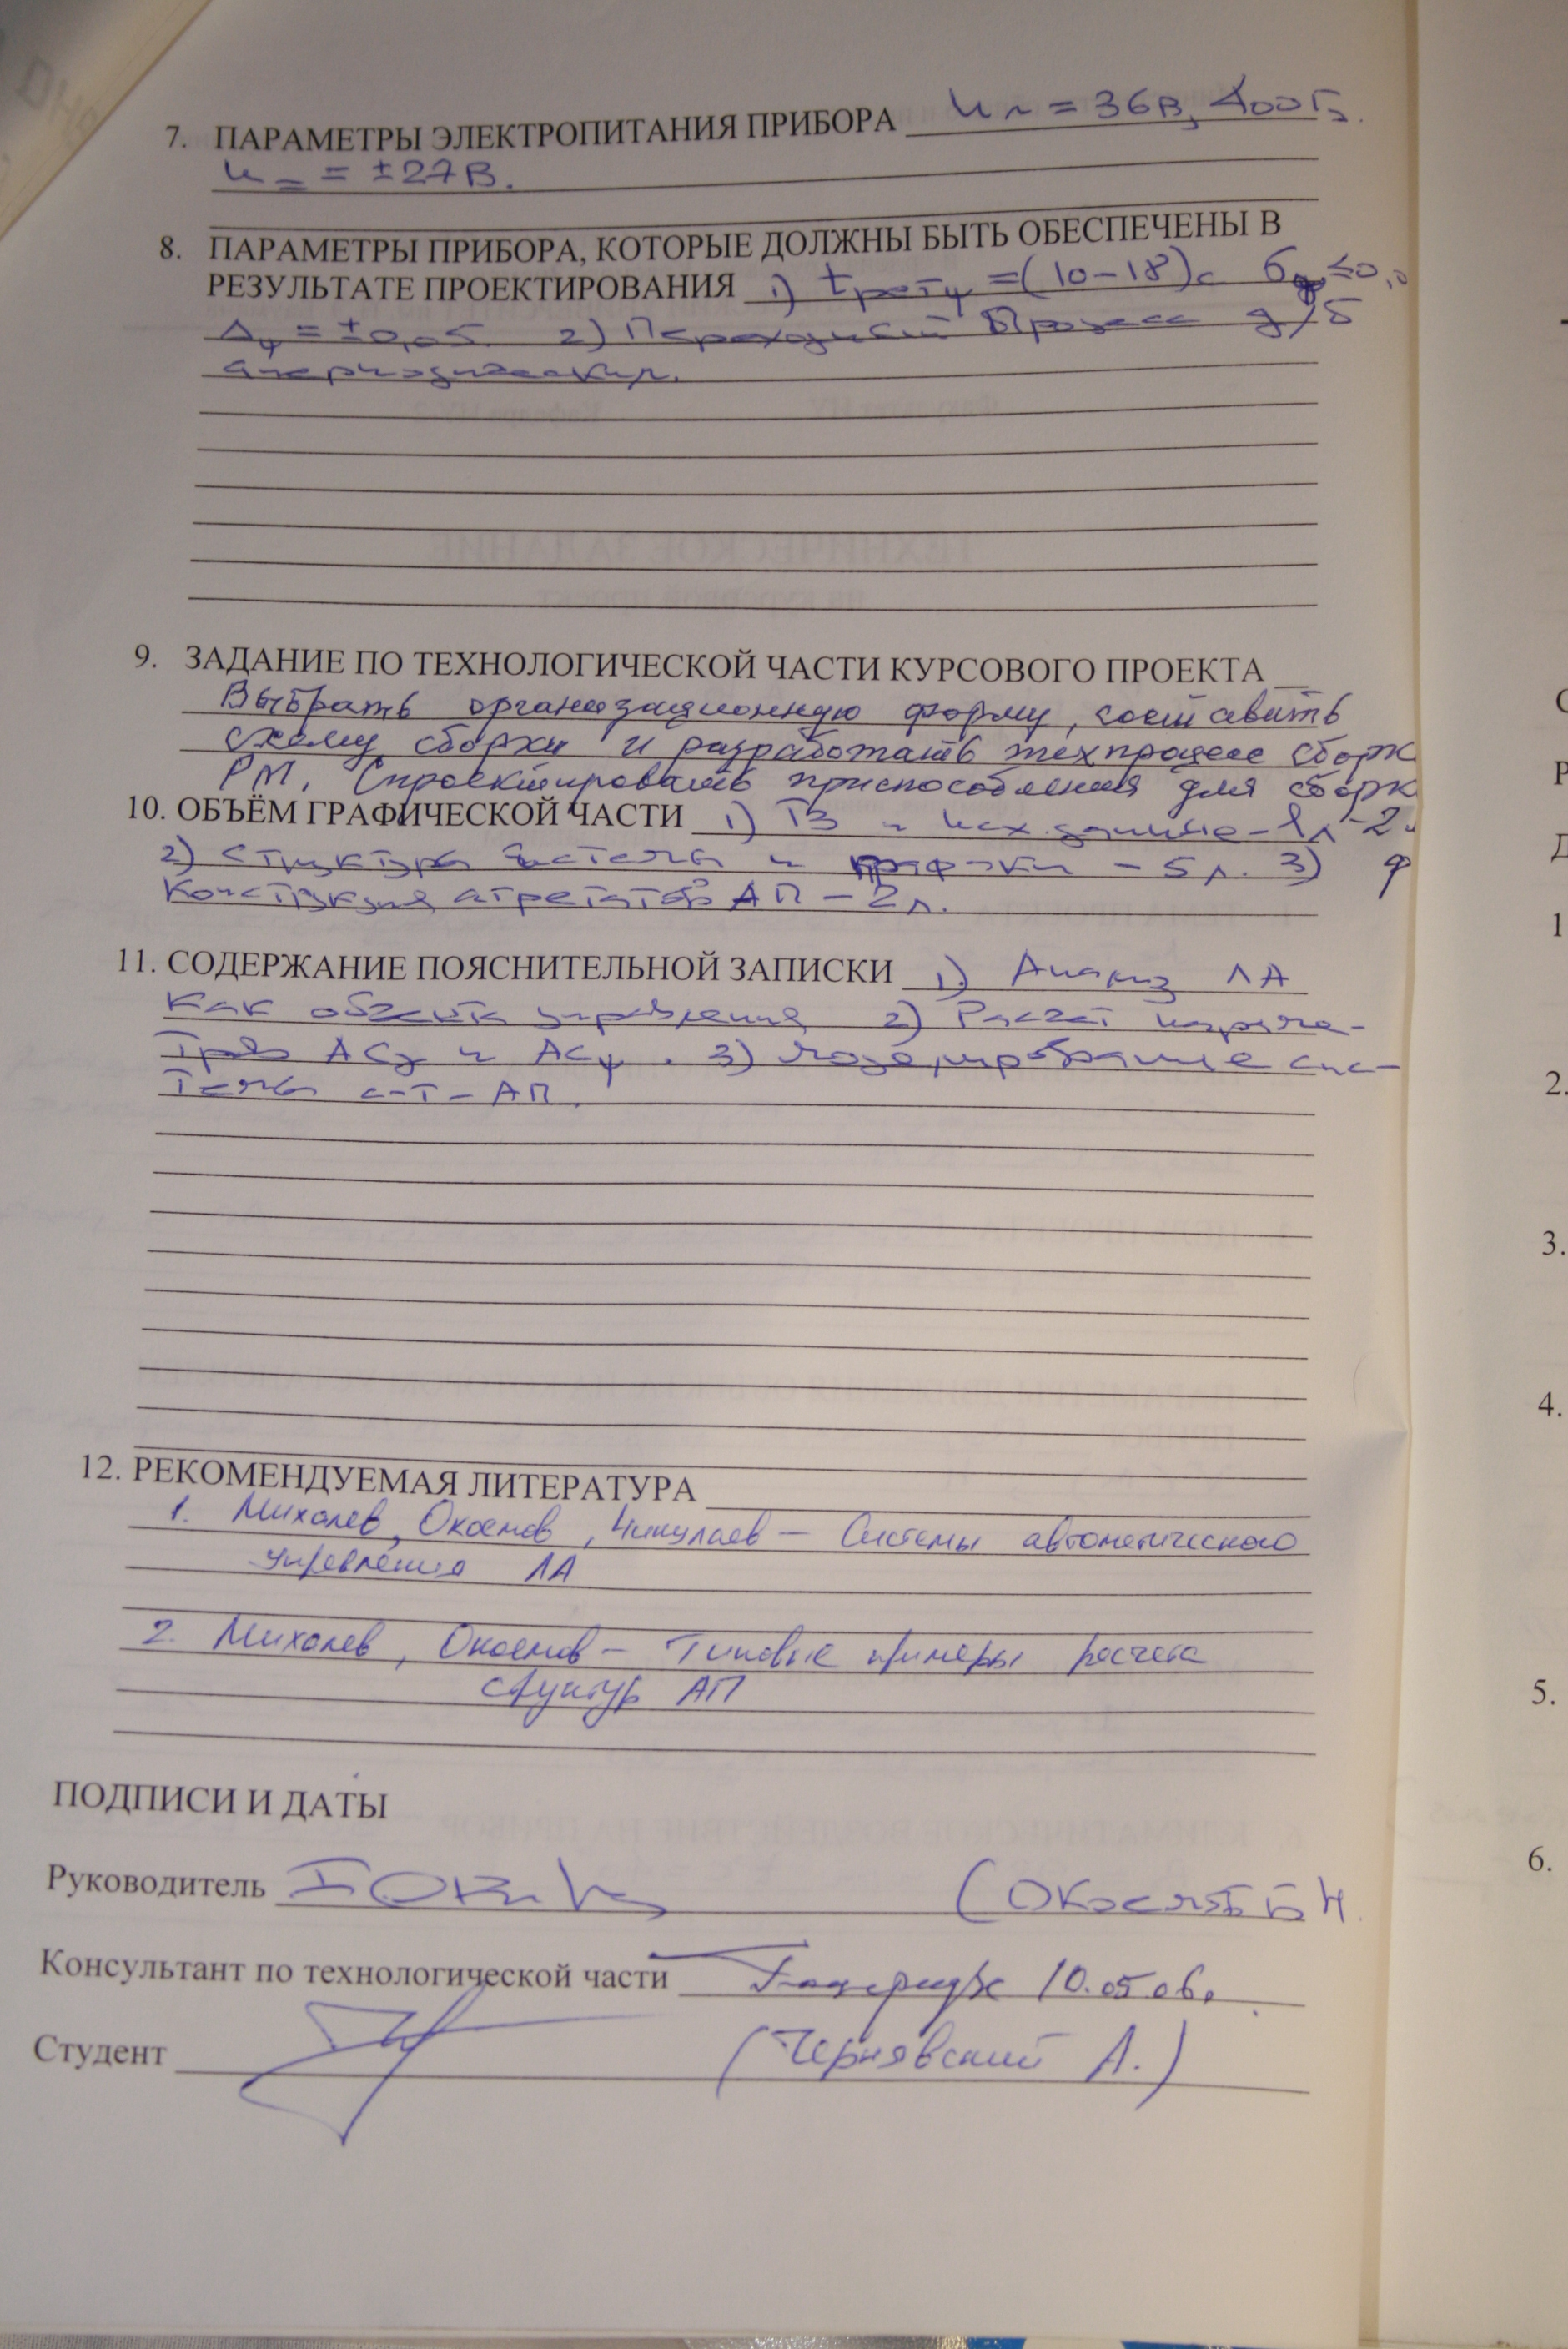 7. ПАРАМЕТРЫ ЭЛЕКТРОПИТАНИЯ ПРИБОРА U~ = 36В, 400Гц.
U= = ±27В.
8. ПАРАМЕТРЫ ПРИБОРА, КОТОРЫЕ ДОЛЖНЫ БЫТЬ ОБЕСПЕЧЕНЫ В
РЕЗУЛЬТАТЕ ПРОЕКТИРОВАНИЯ 1) t рег ψ = (10-18)с σψ ≤0,0
Δψ = ±0,05. 2) Переходный процесс д/б
апериодическим.
9. ЗАДАНИЕ ПО ТЕХНОЛОГИЧЕСКОЙ ЧАСТИ КУРСОВОГО ПРОЕКТА
Выбрать организационную форму, составить
схему сборки и разработать техпроцесс сборк
РМ. Спроектировать приспособления для сборк
10. ОБЪЁМ ГРАФИЧЕСКОЙ ЧАСТИ 1) ТЗ и исх. данные - 1л - 2
2) структура системы и графики - 5 л. 3)
Конструкция агрегатов АП - 2 л.
11. СОДЕРЖАНИЕ ПОЯСНИТЕЛЬНОЙ ЗАПИСКИ 1) Анализ ЛА
как объекта управления 2) Расчет параме-
тров и АСψ. 3) Моделирование сис-
темы с-т - АП.
12. РЕКОМЕНДУЕМАЯ ЛИТЕРАТУРА
1. Михалев, Окоемов, Чикулаев - Системы автоматического
управления ЛА
2. Михалев, Окоемов - Типовые примеры расчета
структур АП
ПОДПИСИ И ДАТЫ
Руководитель (Окоемов Б Н.
Консультант по технологической части 10.05.06.
Студент (Чернявский А.)
С
Р
Д
1
2.
3.
4.
5.
6.